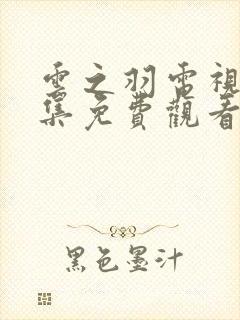 雲之羽電視
集免費觀看
黑色墨汁